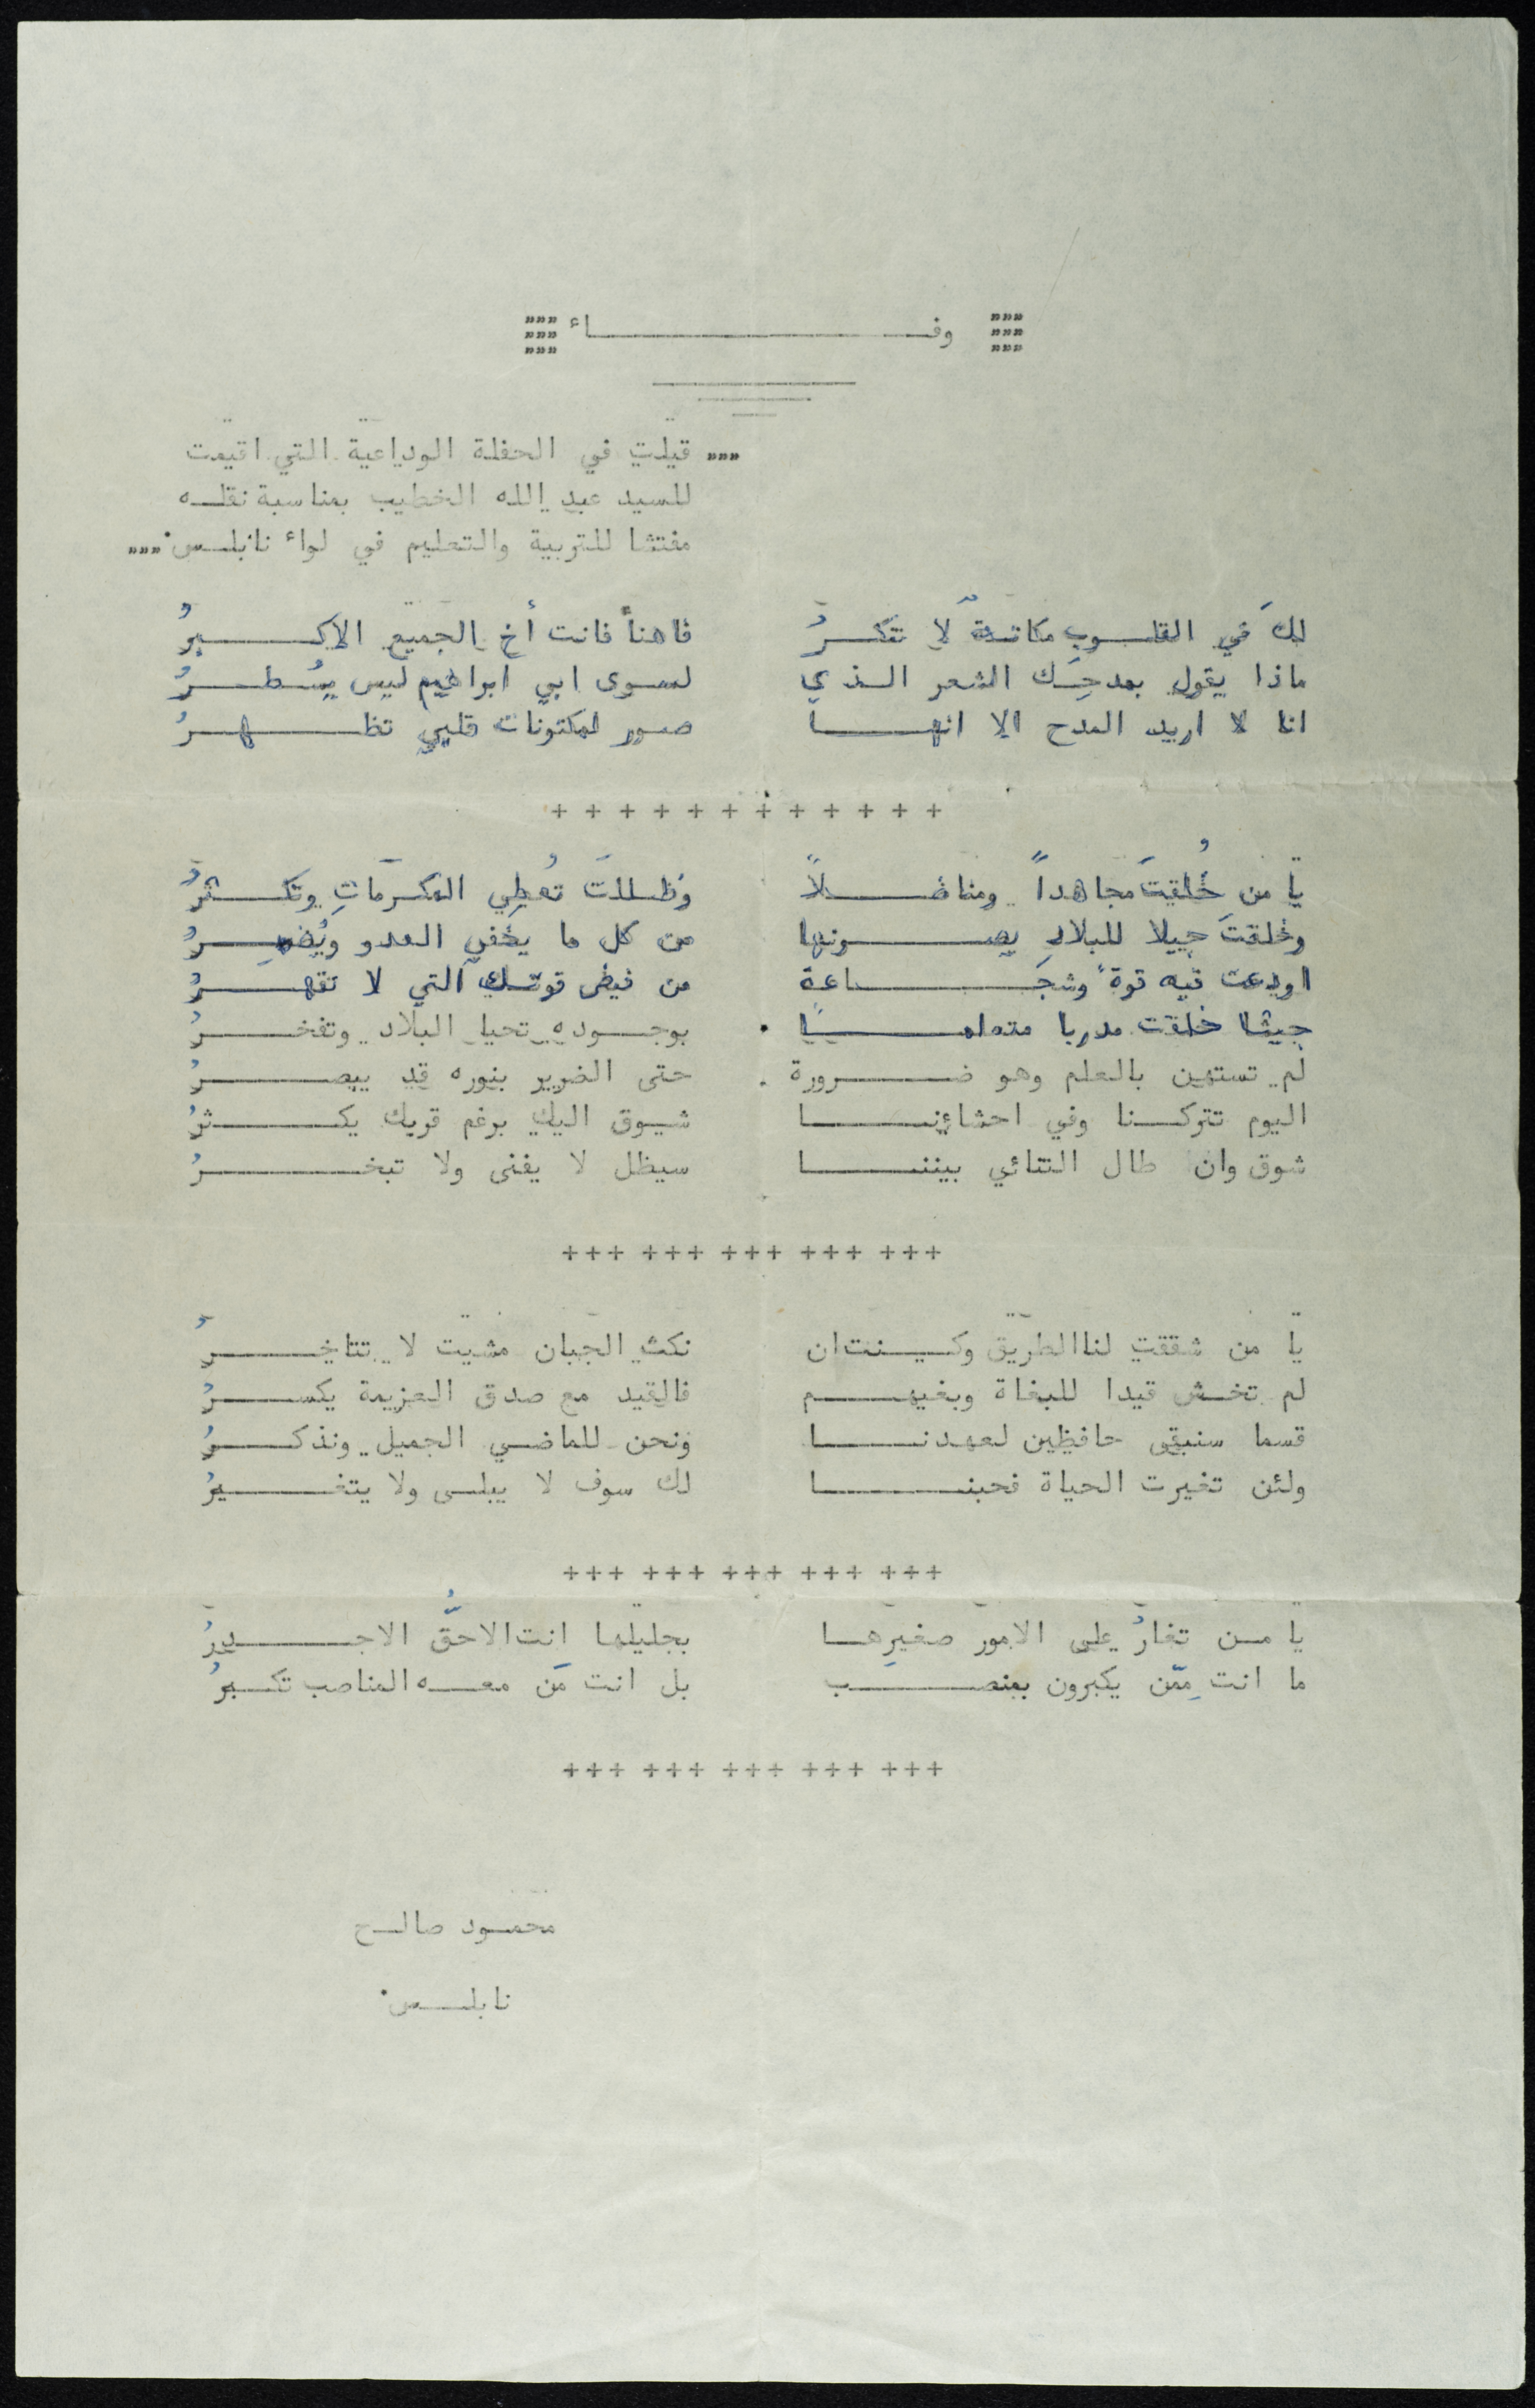 """ وفاء """
""" قيلت في الحفلة الوداعية التي اقيمت
للسيد عبد الله الخطيب بمناسبة نقله
مفتشا للتربية والتعليم في لواء نابلس. """
لكَ في القلوب مكانةٌ لا تنكرُ فاهنأ فانت أخ الجميع الاكبرُ
ماذا يقول بمدحِك الشعر الذي لسوى ابي ابراهيم ليس يُسطرُ
انا لا اريد المدح الا انها صور لمكنونات قلبي تظهرُ
+ + + + + + + + + + + +
يا من خُلقتَ مجاهداً ومناضلاً وظللتَ تُعطِي المكرمَاتِ وتكثرُ
وخلقتَ جيلا للبلادِ يصونها من كل ما يخفي العدو ويُضمِرُ
اودعت فيه قوةً وشجَاعة من فيض قوتك التي لا تقهرُ
جيشا خلقت مدربا متعلماً بوجوده تحيا البلاد وتفخرُ
لم تستهن بالعلم وهو ضرورة حتى الضرير بنوره قد يبصرُ
اليوم تتركنا وفي احشاءنا شوق اليك برغم قربك يكثرُ
شوق وان طال التنائي بيننا سيظل لا يفنى ولا تبخرُ
+++ +++ +++ +++ +++
يا من شققت لنا الطريق وكنت ان نكث الجبان مشيت لا تتاخرُ
لم تخش قيدا للبغاة وبغيهم فالقيد مع صدق العزيمة يكسرُ
قسما سنبقى حافظين لعهدنا ونحن للماضي الجميل ونذكرُ
ولئن تغيرت الحياة فحبنا لك سوف لا يبلى ولا يتغيرُ
+++ +++ +++ +++ +++
يا من تغارُ على الامور صغيرِها بجليلها انت الاحقُّ الاجدرُ
ما انت مِمّن يكبرون بمنصب بل انت مَن معه المناصب تكبرُ
+++ +++ +++ +++ +++
محمود صالح
نابلس.